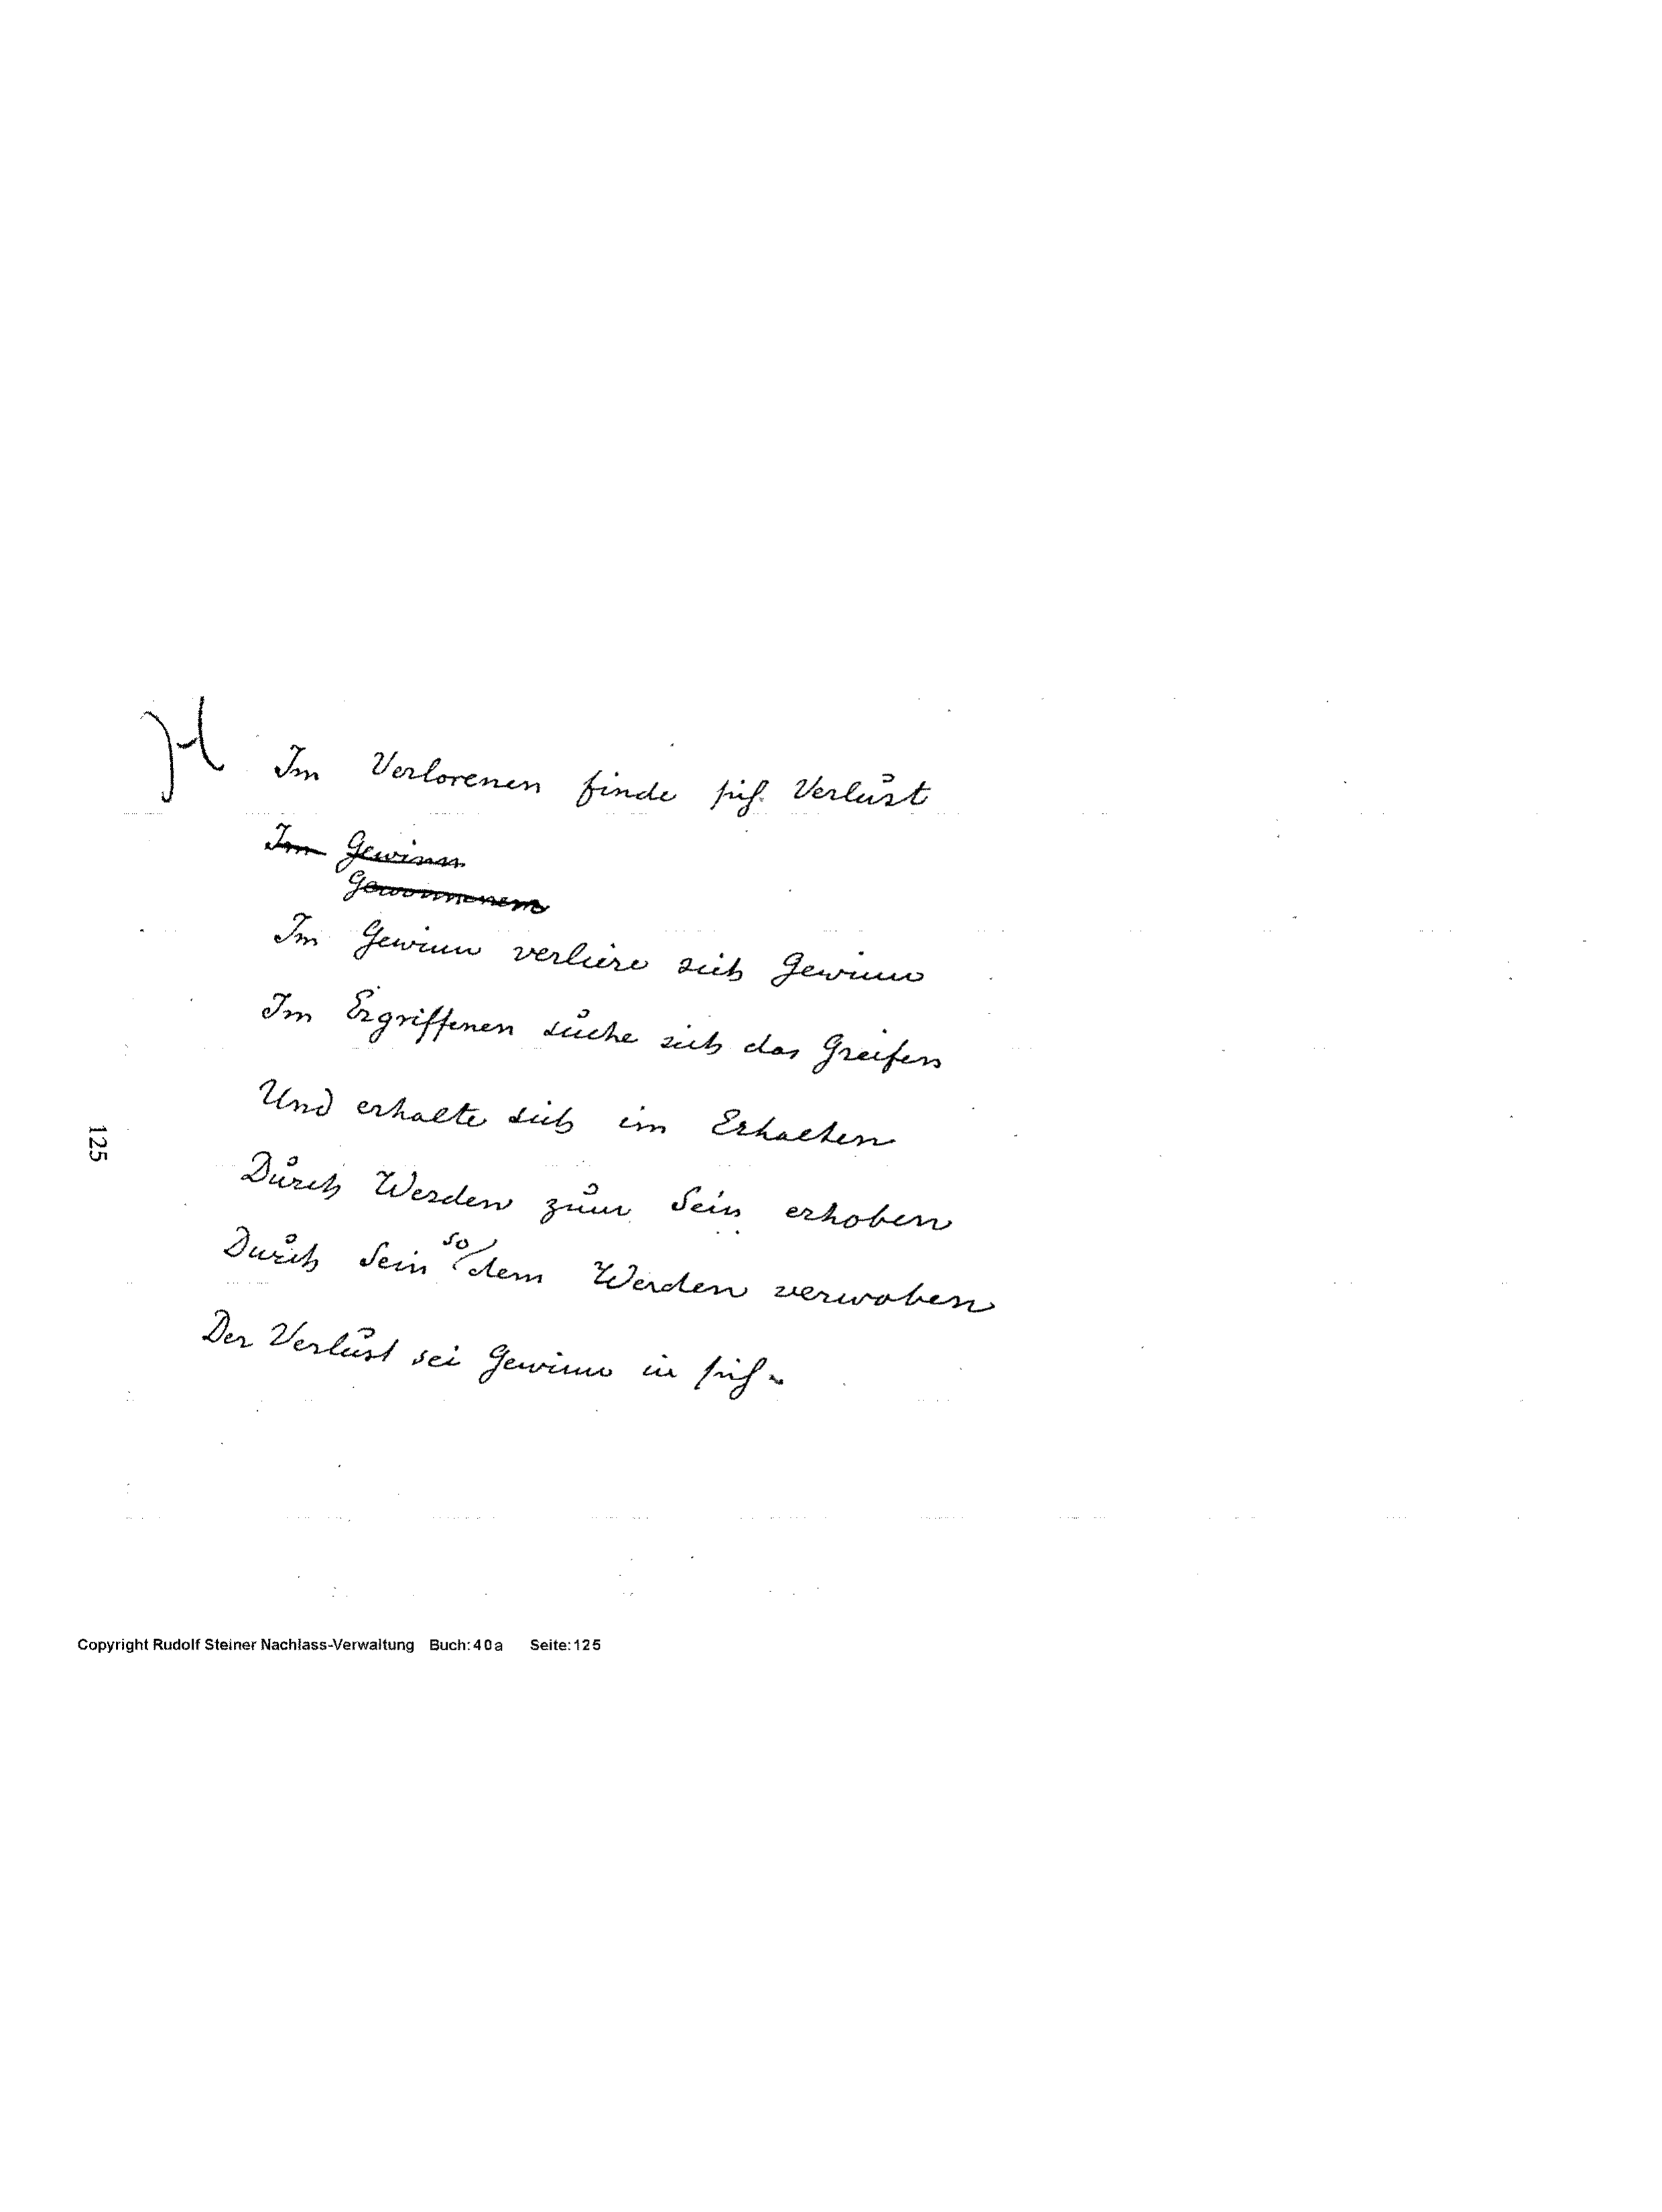 ♓ Im Verlorenen finde sich Verlust
Im Gewinn
Gewonnenem
Im Gewinn verliere sich Gewinn
Im Ergriffenen suche sich das Greifen
Und erhalte sich im Erhalten
Durch Werden zum Sein erhoben
Durch Sein so dem Werden verwoben
Der Verlust sei Gewinn in sich.
125
Copyright Rudolf Steiner Nachlass-Verwaltung Buch:40a Seite:125